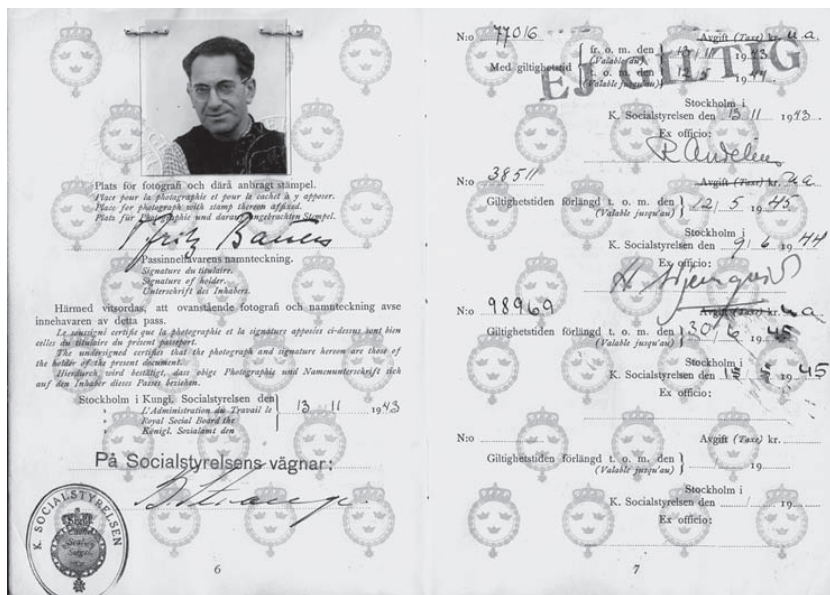 Plats för fotografi och därå anbragt stämpel.
Place pour la photographie et pour le cachet à y apposer.
Place for photograph with stamp thereon affixed.
Plats für Photographie und darauf angebrachten Stempel.
Fritz Bauer
Passinnehavarens namnteckning.
Signature du titulaire.
Signature of holder.
Unterschrift des Inhabers.
Härmed vitsordas, att ovanstående fotografi och namnteckning avse
innehavaren av detta pass.
Le soussigné certifie que la photographie et la signature apposées ci-dessus sont bien
celles du titulaire du présent passeport.
The undersigned certifies that the photograph and signature hereon are those of
the holder of the present document.
Hierdurch wird bestätigt, dass obige Photographie und Namenunterschrift sich
auf den Inhaber dieses Passes beziehen.
Stockholm i Kungl. Socialstyrelsen den 13 11 1943
L'Administration du Travail le
Royal Social Board the
Königl. Sozialamt den
På Socialstyrelsens vägnar:
K. SOCIALSTYRELSEN
6
N:o 77016 Avgift (Taxe) kr. u a.
Med giltighetstid { fr. o. m. den (Valable du) 13/11 1943
t. o. m. den (Valable jusqu'au) 12/5 1944
EJ GILTIG
Stockholm i
K. Socialstyrelsen den 13 11 1943
Ex officio:
N:o 38511 Avgift (Taxe) kr. u a
Giltighetstiden förlängd t. o. m. den (Valable jusqu'au) } 12/5 1945
Stockholm i
K. Socialstyrelsen den 9/6 1944
Ex officio:
N:o 98969 Avgift (Taxe) kr. u a
Giltighetstiden förlängd t. o. m. den (Valable jusqu'au) } 30/6 1945
Stockholm i
K. Socialstyrelsen den 15 5 1945
Ex officio:
N:o Avgift (Taxe) kr.
Giltighetstiden förlängd t. o. m. den (Valable jusqu'au) } / 19
Stockholm i
K. Socialstyrelsen den / 19
Ex officio:
7